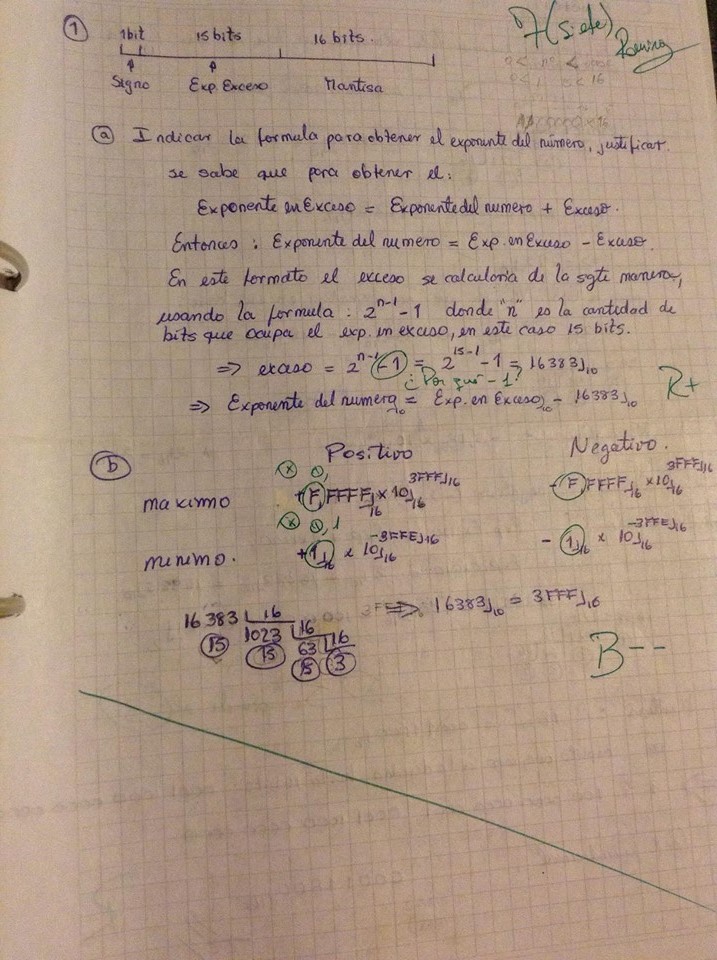 ① 1bit 15 bits 16 bits. 7 (siete)
Signo Exp. Exceso Mantisa
ⓐ Indicar la formula para obtener el exponente del número, justificar.
se sabe que para obtener el:
Exponente en Exceso = Exponente del numero + Exceso.
Entonces : Exponente del numero = Exp. en Exceso - Exceso.
En este formato el exceso se calcularia de la sgte manera,
usando la formula : 2^(n-1) - 1 donde "n" es la cantidad de
bits que ocupa el exp. en exceso, en este caso 15 bits.
⇒ exceso = 2^(n-1) - 1 = 2^(15-1) - 1 = 16383⌋₁₀
¿Por qué -1? R+
⇒ Exponente del numero⌋₁₀ = Exp. en Exceso⌋₁₀ - 16383⌋₁₀
ⓑ Positivo Negativo.
maximo +F,FFFF⌋₁₆ x 10⌋₁₆^(3FFF⌋₁₆) -F,FFFF⌋₁₆ x 10⌋₁₆^(3FFF⌋₁₆)
x 0,
x 0,1
minimo. +1⌋₁₆ x 10⌋₁₆^(-3FFE⌋₁₆) - 1⌋₁₆ x 10⌋₁₆^(-3FFE⌋₁₆)
16383 16 ⇒ 16383⌋₁₀ = 3FFF⌋₁₆
15 1023 16
15 63 16
15 3
B--